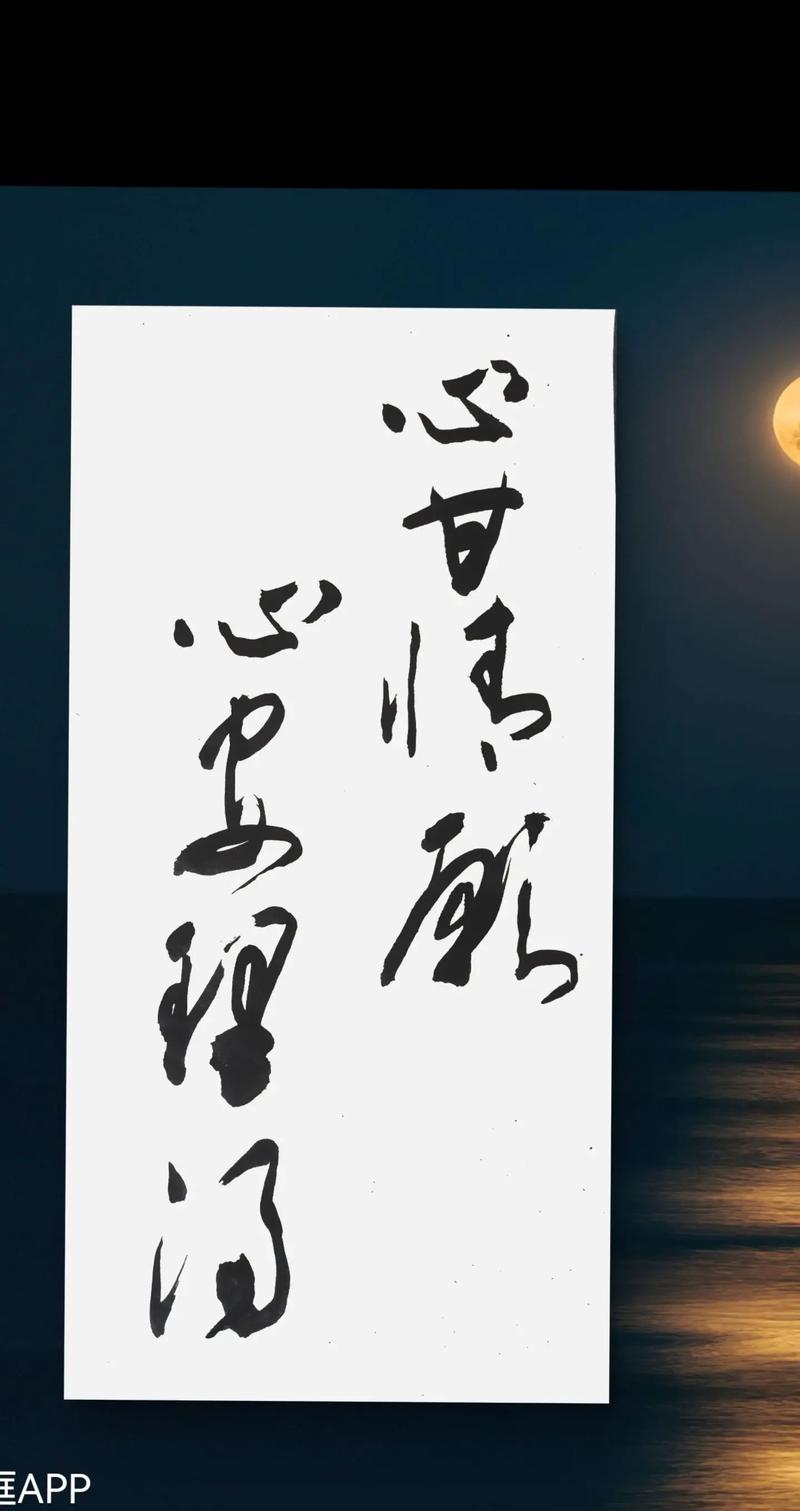 心甘情願
心安理得
APP